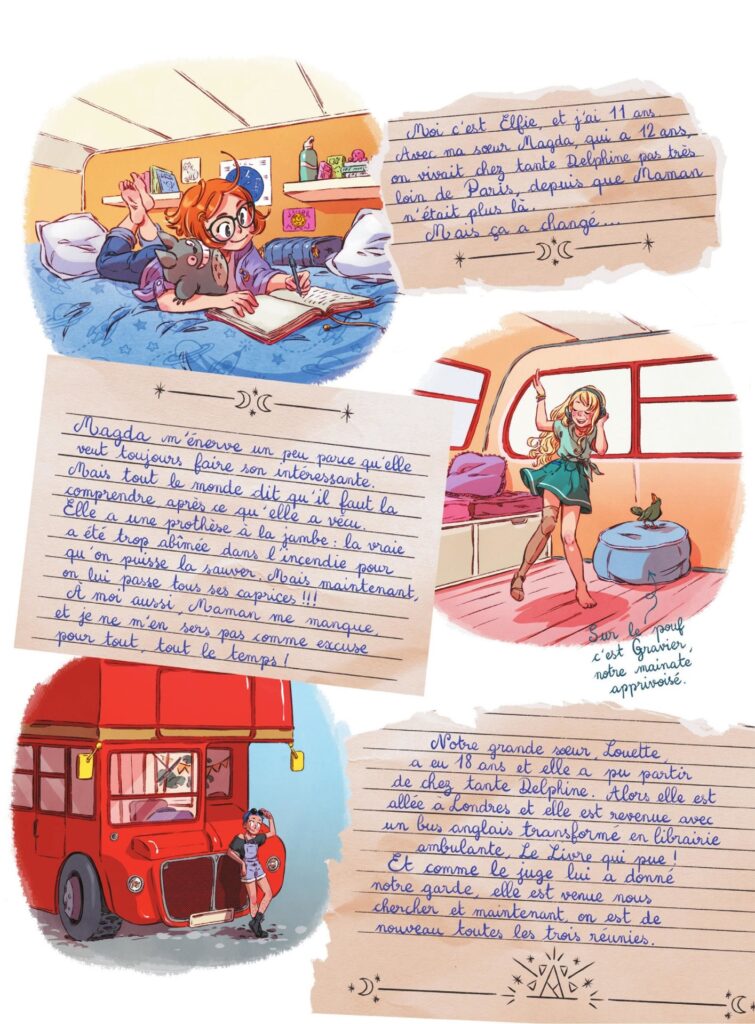 Moi c'est Elfie, et j'ai 11 ans.
Avec ma sœur Magda, qui a 12 ans,
on vivait chez tante Delphine pas très
loin de Paris, depuis que Maman
n'était plus là.
Mais ça a changé...
Magda m'énerve un peu parce qu'elle
veut toujours faire son intéressante.
Mais tout le monde dit qu'il faut la
comprendre après ce qu'elle a vécu.
Elle a une prothèse à la jambe : la vraie
a été trop abîmée dans l'incendie pour
qu'on puisse la sauver. Mais maintenant,
on lui passe tous ses caprices !!!
À moi aussi, Maman me manque,
et je ne m'en sers pas comme excuse
pour tout, tout le temps !
Sur le pouf
c'est Gravier,
notre mainate
apprivoisé.
Notre grande sœur, Louette,
a eu 18 ans et elle a pu partir
de chez tante Delphine. Alors elle est
allée à Londres et elle est revenue avec
un bus anglais transformé en librairie
ambulante, Le Livre qui pue !
Et comme le juge lui a donné
notre garde, elle est venue nous
chercher et maintenant, on est de
nouveau toutes les trois réunies.